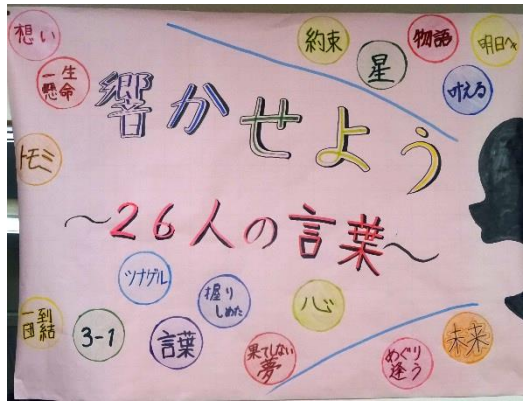 想い
約束
物語
明日へ
一生
懸命
星
叶える
響かせよう
トモミ
～26人の言葉～
ツナグル
握り
しめた
心
一致
団結
3-1
言葉
果てしない
夢
めぐり
逢う
未来